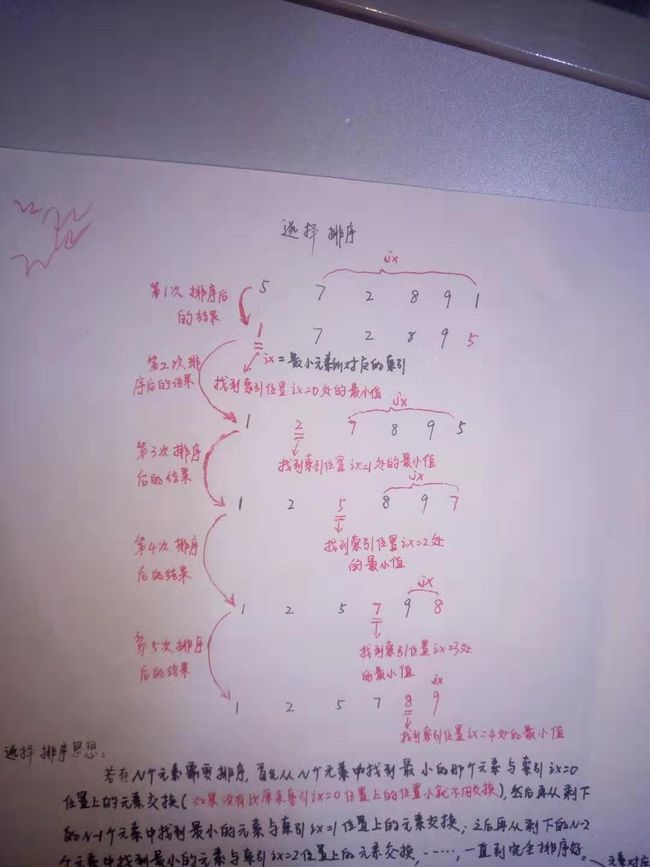 选择排序
jx
5 7 2 8 9 1
第1次排序后
的结果
1 7 2 8 9 5
ix=最小元素所对应的索引
第2次排
序后的结果
找到索引位置ix=0处的最小值
jx
1 2 7 8 9 5
找到索引位置ix=1处的最小值
第3次排序
后的结果
jx
1 2 5 8 9 7
找到索引位置ix=2处
的最小值
第4次排序
后的结果
jx
1 2 5 7 9 8
找到索引位置ix=3处
的最小值
第5次排序
后的结果
jx
1 2 5 7 8 9
找到索引位置ix=4处的最小值
选择排序思想:
若有N个元素需要排序,首先从N个元素中找到最小的那个元素与索引ix=0
位置上的元素交换(如果没有比原来索引ix=0位置上的位置小就不用交换),然后再从剩下
的N-1个元素中找到最小的元素与索引ix=1位置上的元素交换,之后再从剩下的N-2
个元素中找到最小的元素与索引ix=2位置上的元素交换,……,一直到完全排序好。
元素对应